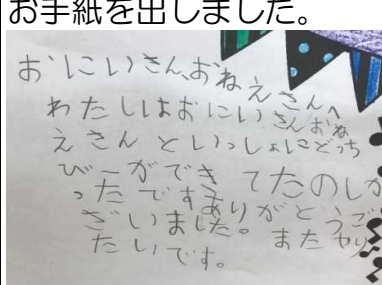 お手紙を出しました。
おにいさん、おねえさんへ
わたしはおにいさんおね
えさんといっしょにどっち
びーができてたのしか
ったですありがとうご
ざいました。またやり
たいです。